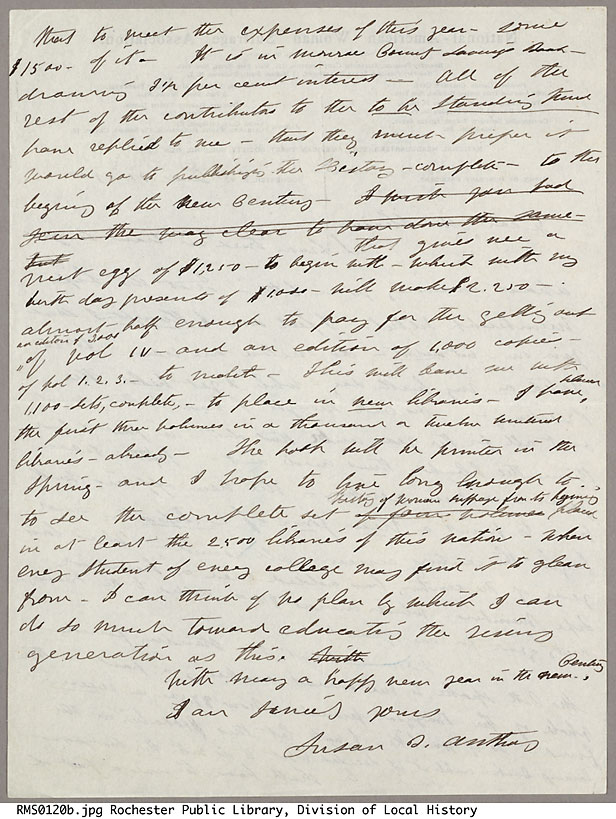 that to meet the expenses of this year - some
$1500 - of it - It is in Monroe County Savings Bank -
drawing 3½ per cent interest - All of the
rest of the contributors to the to be Standing Fund
have replied to me - that they much prefer it
would go to publishing the History - complete - to the
begining of the new Century - I wish you had
seen the way clear to have done the same -
but that gives me a
nest egg of $1,250 - to begin with - which with my
birth day presents of $1,000 - will make $2.250 -
almost half enough to pay for the getting out
an edition of 3000
"of vol IV - and an edition of 1,000 copies -
of vol 1. 2. 3. - to match - This will leave me with
1,100 - sets, complete, - to place in new libraries - I have placed
the first three volumes in a thousand or twelve hundred
libraries - already - The book will be printed in the
Spring - and I hope to live long enough to
History of Woman Suffrage from its beginning
to see the complete set of four volumes placed
in at least the 2500 libraries of this nation - where
every student of every college may find it to glean
from - I can think of no plan by which I can
do so much toward educating the rising
generation as this. With
With many a happy new year in the new Century,
I am sincerely yours
Susan B. Anthony
RMS0120b.jpg Rochester Public Library, Division of Local History